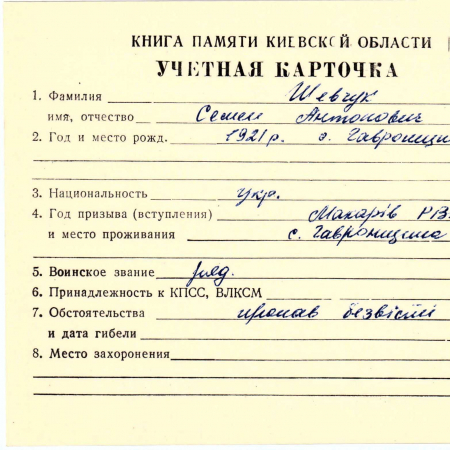 КНИГА ПАМЯТИ КИЕВСКОЙ ОБЛАСТИ
УЧЕТНАЯ КАРТОЧКА
1. Фамилия Шевчук
имя, отчество Семен Антонович
2. Год и место рожд. 1921 р. с. Гавронщин
3. Национальность укр.
4. Год призыва (вступления) Макарів РВ
и место проживания с. Гавронщина
5. Воинское звание ряд.
6. Принадлежность к КПСС, ВЛКСМ
7. Обстоятельства пропав безвісти
и дата гибели
8. Место захоронения